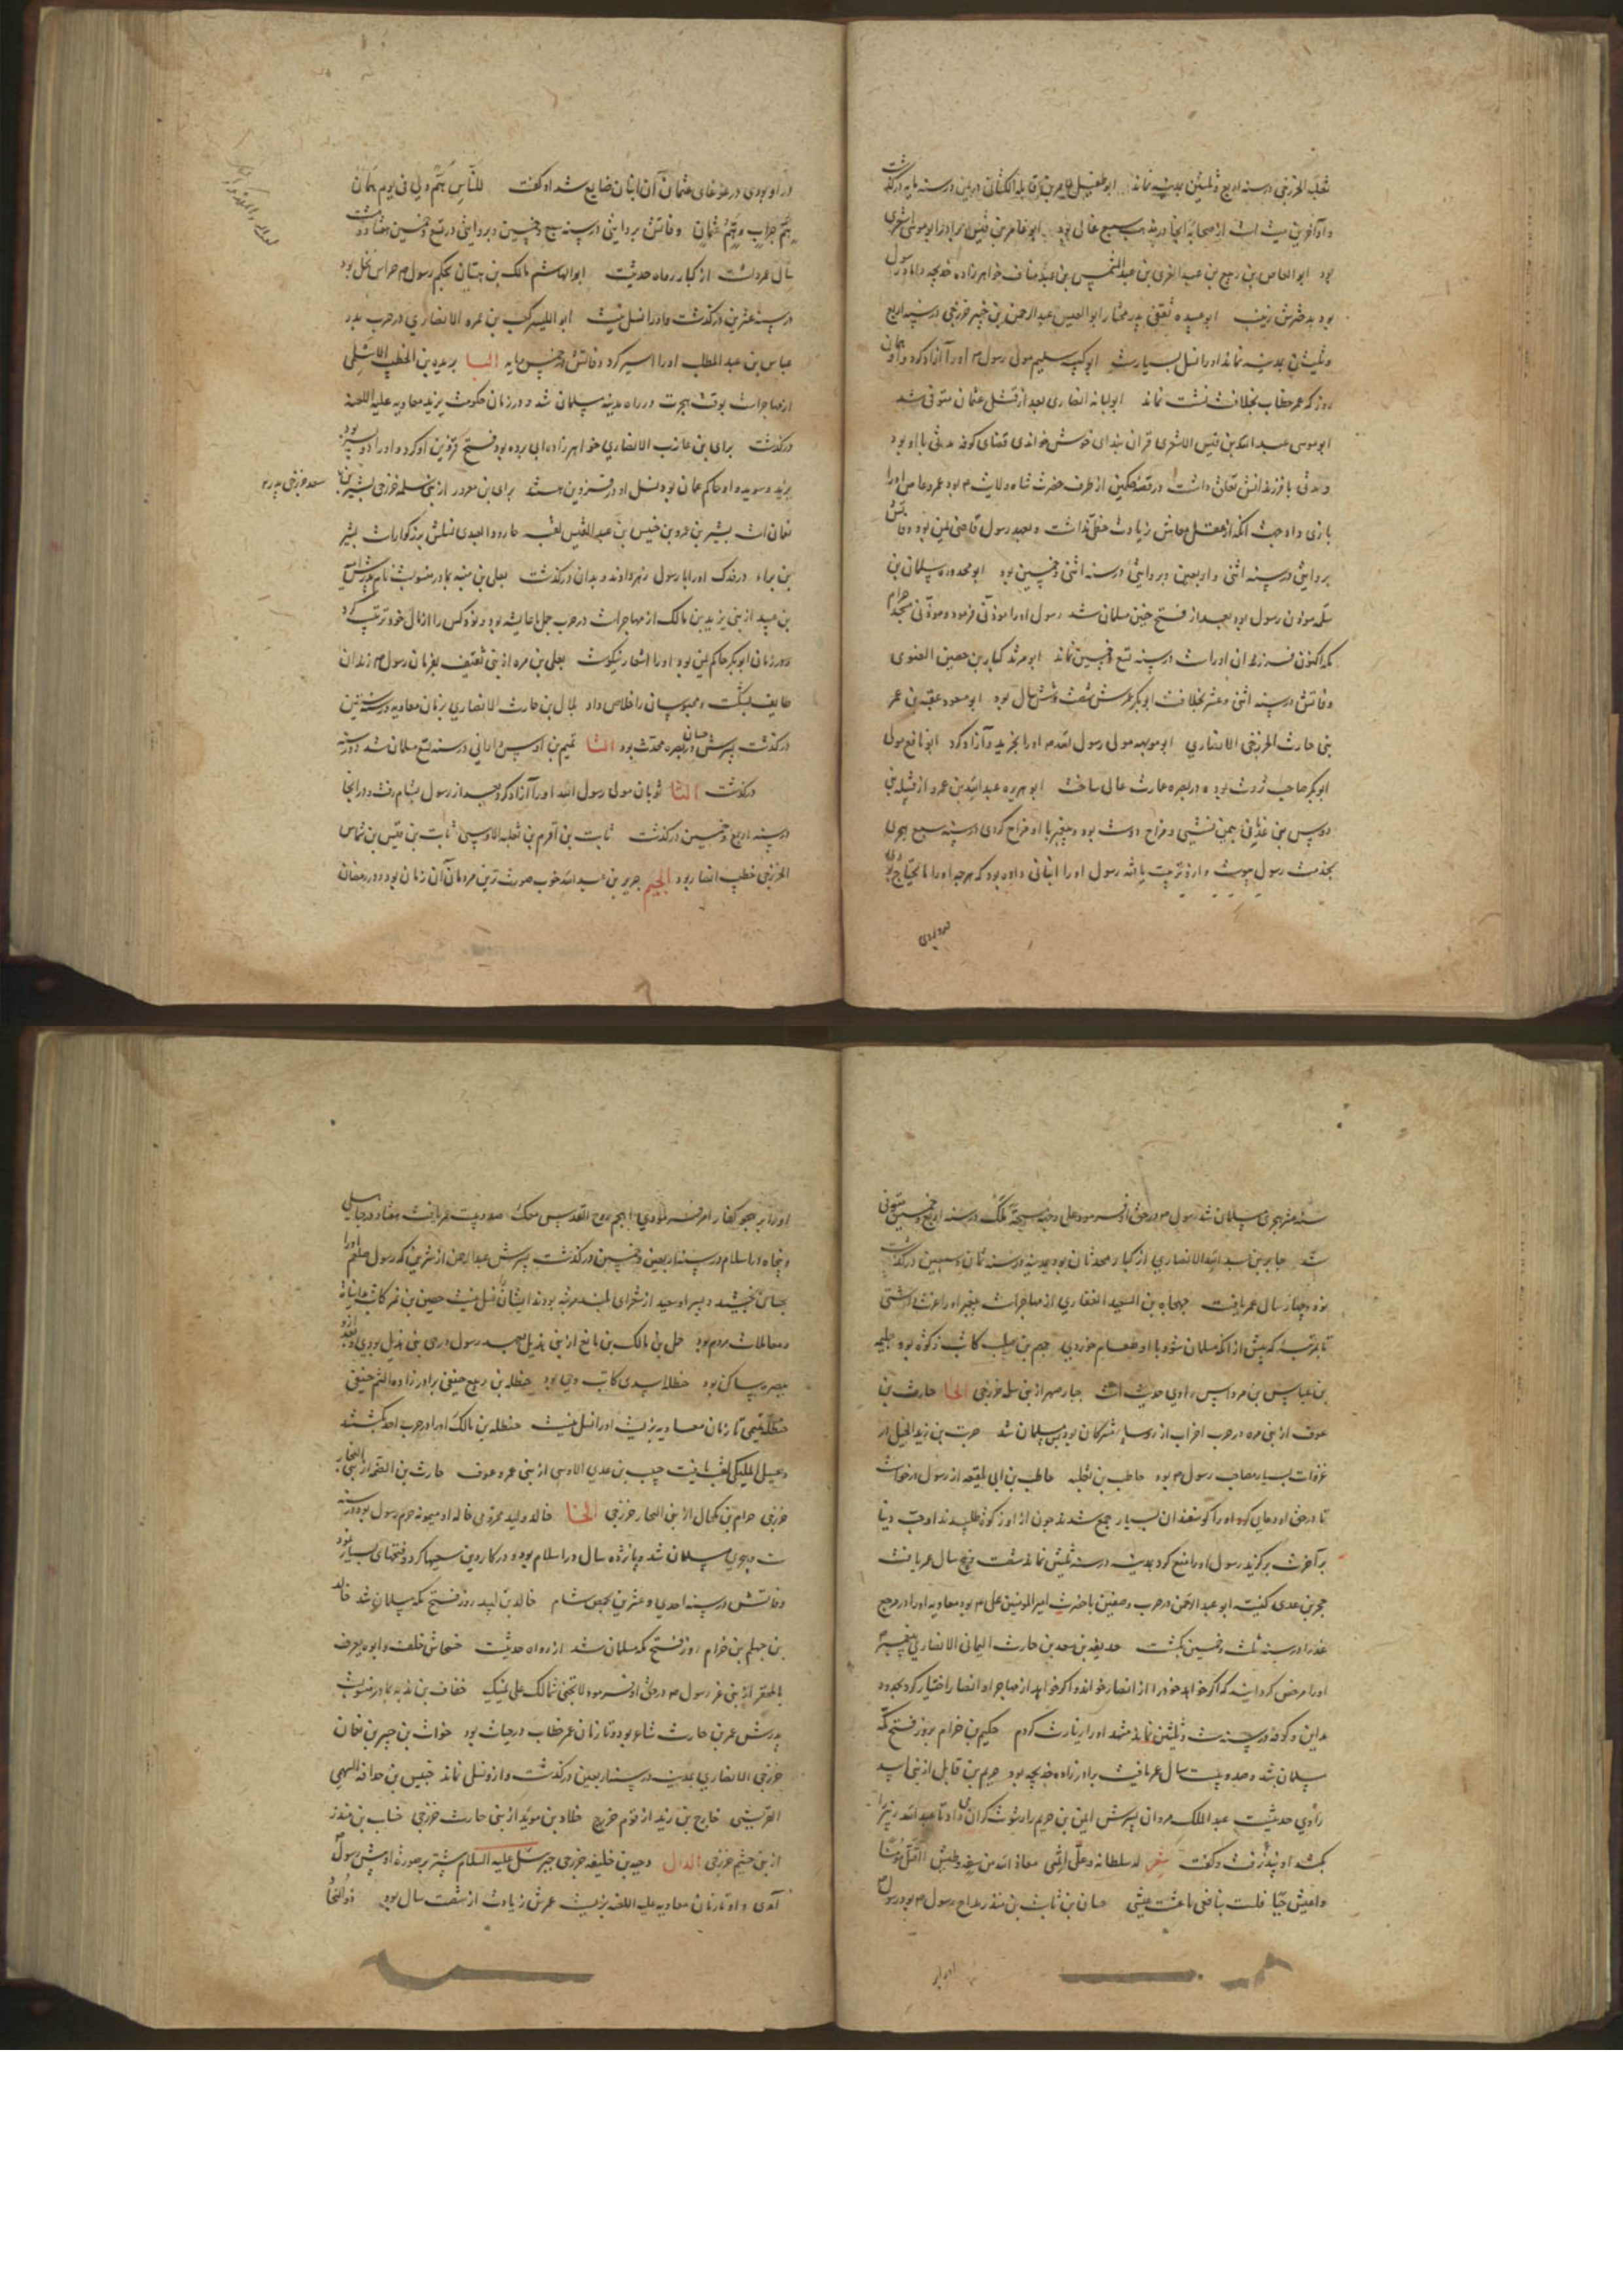 ثعلبة الخزرجی در سنه اربع و ثلثین بمدینه نماند ابوطفیل عامر بن واثله الکنانی در سنه مایه درگذشت
و او آخرین کسی است از صحابه ابوعامر بن قیس برادر ابوموسی اشعری
بود ابوالعاص بن ربیع بن عبدالعزی بن عبدالشمس بن عبدمناف خواهرزاده خدیجه و داماد رسول
بود بدخترش زینب ابوعبیده ثقفی پدر مختار ابوالعبس عبدالرحمن بن جبیر خزرجی در سنه اربع
و ثلثین بمدینه نماند او را نسل بسیارست ابوکبشه سلیم مولی رسول م او را آزاد کرد و همان
روز که عمر خطاب بخلافت نشست نماند ابولبابه انصاری بعد از قتل عثمان متوفی شد
ابوموسی عبدالله بن قیس الاشعری قرآن بغدای خوش خواندی قضای کوفه مدتی با او بود
و مدتی با فرزندانش تعلق داشت در قصه حکمین از طرف حضرت شاه ولایت م بود عمروعاص او را
بازی داد جهت آنکه از عقل معاش زیادت حظی نداشت و بعهد رسول قاضی یمن بود وفاتش
بروایتی در سنه اثنی و اربعین و بروایتی در سنه اثنی و خمسین بود ابومحذوره سلمان بن
سلمه موذن رسول بود بعد از فتح حنین مسلمان شد رسول او را موذنی فرمود و موذنی مسجد حرام
مکه اکنون فرزندان او راست در سنه تسع و خمسین نماند ابومرثد کناز بن حصین الغنوی
وفاتش در سنه اثنی و عشر بخلافت ابوبکر عمرش شصت و شش سال بود ابومسعود عقبة بن عمر
بنی حارث الخزرجی الانصاری ابومویهبه مولی رسول م او را بخرید و آزاد کرد ابونافع مولی
ابوبکر صاحب ثروت بود و در بصره عمارت عالی ساخت ابوهریره عبدالله بن عمرو از قبیله بنی
دوس بن همین نشینی و مزاح دوست بود و پیغمبر با او مزاح کردی در سنه سبع هجری
بخدمت رسول پیوست و ازو تربیت یافته رسول او را انبانی داده بود که هرچه او را مایحتاج بودی
در او بودی در غوغای عثمان آن انبان ضایع شد او گفت للناس هم ولی فی یوم همان
هم جراب و هم عثمان وفاتش بروایتی در سنه سبع و خمسین و بروایتی در تسع و خمسین هفتاد و هشت
سال عمر داشت از کبار رواه حدیثست ابوالهیثم مالک بن تیهان بحکم رسول م حراس نخل بود
در سنه عشرین درگذشت و او را نسل نیست ابوالیسر کعب بن عمرو الانصاری در حرب بدر
عباس بن عبدالمطلب او را اسیر کرد وفاتش خمس مایه البا بریده بن الخطیب الاسلمی
از مهاجرانست بوقت هجرت در راه مدینه مسلمان شد و در زمان حکومت یزید معاویه علیه اللعنه
درگذشت برای بن عازب الانصاری خواهرزاده ابی برده بود فتح قزوین او کرد و او را دو پسر بود
یزید و سوید و او حاکم عمان بود نسل او در قزوین هستند برای بن معرور از بنی سلمه خزرجی بشیر بن
سعد خزرجی پدر
نعمان است بشیر بن عمرو بن خنیس بن عبدالقیس لقب جارود العبدی نسلش بزرگوارست بشر
بن براء در خدک او را با رسول زهر دادند و بدان درگذشت یعلی بن منبه بمادر منسوبست نام پدرش امیه
بن عبید از بنی یزید بن مالک از مهاجرانست در حرب جمل با عایشه بود و نود کس را از مال خود ترتیب کرد
و در زمان ابوبکر حاکم یمن بود او را اشعار نیکوست یعلی بن مره از بنی ثقیف بفرمان رسول م زندان
طایف بشکست و محبوسان را خلاص داد بلال بن حارث الانصاری بزمان معاویه در سنه ستین
درگذشت پسرش حسان در بصره محدث بود التا تمیم بن اوس الداری در سنه تسع مسلمان شد و در سنه
درگذشت الثا ثوبان مولی رسول الله او را آزاد کرد بعد از رسول بشام رفت و در آنجا
در سنه اربع و خمسین درگذشت ثابت بن اقرم بن ثعلبه الاوسی ثابت بن قیس بن شماس
الخزرجی خطیب انصار بود الجیم جریر بن عبدالله خوب صورت ترین مردمان آن زمان بود و در رمضان
سنه عشر هجری مسلمان شد رسول م در حق او فرمود علی وجهه مسحة ملک در سنه اربع و خمسین متوفی
شد جابر بن عبدالله الانصاری از کبار محدثان بود بمدینه در سنه ثمان و سبعین درگذشت
نود و چهار سال عمر یافت جهجاه بن السعید الغفاری از مهاجرانست پیغمبر او را عزت داشتی
تا بمرتبه که پیش از آنکه مسلمان شود با او طعام خوردی جهم بن صلت کاتب زکوة بود جلیمه
بن عباس بن مرداس راوی حدیث است جبار صهر از بنی سلمه خزرجی الحا حارث بن
عوف از بنی مره در حرب احزاب از روسا مشرکان بود پس مسلمان شد حریث بن زید الخیل در
غزوات بسیار مصاحب رسول م بود حاطب بن ثعلبه حاطب بن ابی بلتعه از رسول درخواست
تا در حق او دعای کرد او را گوسفندان بسیار جمع شدند چون ازو زکوة طلبیدند او حب دنیا
بر آخرت برگزید رسول او را منع کرد بمدینه در سنه ثلثین نماند شصت و پنج سال عمر یافت
حجر بن عدی کنیت ابو عبدالرحمن در حرب و صفین با حضرت امیرالمومنین علی م بود معاویه او را در مرج
عذرا در سنه ثلث و خمسین بکشت حذیفه بن سعد بن حارث الیمانی الانصاری پیغمبر
او را مرخص کردانید که اگر خواهد خود را از انصار خواند و اگر خواهد از مهاجر او انصار اختیار کرد بحدود
مداین و کوفه در سنه ست و ثلثین نماند مشهد او را زیارت کردم حکیم بن حزام بروز فتح مکه
مسلمان شد و صد و بیست سال عمر یافت برادرزاده خدیجه بود خریم بن فاتک از بنی اسد
راوی حدیثست عبدالملک مروان پسرش ایمن بن خریم را رشوت گران می داد تا عبدالله زبیر را
بکشد او نپذرفت و گفت شعر له سلطانه و علی اثمی معاذ الله من سفه و طیش أاقتل مومنا
و اعیش حیا فلست بنافعی ما عشت عیشی حسان بن ثابت بن منذر مداح رسول م بود رسول
او را بر هجو کفار امر فرمودی اهجم روح القدس معک صد و بیست عمر یافت هفتاد در جاهلی
و پنجاه در اسلام در سنه اربعین و خمسین درگذشت پسرش عبدالرحمن از شیرین که رسول صلعم او را
بحسان بخشید و پسر او سعید از شعرای بلند مرتبه بودند ایشان را نسل نیست حصین بن نمر کاتب مداینات
و معاملات مردم بود حمل بن مالک بن نابغ از بنی هذیل بعهد رسول در حی بنی هذیل بودی و بعد ازو
ببصره ساکن بود حنظله اسیدی کاتب وحی بود حنظله بن ربیع حنیفی برادرزاده اکثم حنیفی
حنظله تمیمی تا زمان معاویه بزیست او را نسل نیست حنظله بن مالک او را در حرب احد بکشتند
و غسیل الملیکی لقب یافت حبیب بن عدی الاوسی از بنی عمرو عوف حارث بن الصمه از بنی النجار
خزرجی حرام بن مکحال از بنی النجار خزرجی الخا خالد ولید مخزومی خاله او میمونه حرم رسول بود در سنه
ست هجری مسلمان شد و پانزده سال در اسلام بود و در کار دین سعیها کرد و فتحهای بسیار نمود
وفاتش در سنه احدی و عشرین بحمص شام خالد بن لبید روز فتح مکه مسلمان شد خالد
بن جهلم بن حزام روز فتح مکه مسلمان شد از رواه حدیثست
خفاف بن ندبه بمادر منسوبست
پدرش عمر بن حارث شاعر بود و تا زمان عمر خطاب در حیات بود خوات بن جبیر بن نعمان
خزرجی الانصاری بمدینه در سنه اربعین درگذشت و ازو نسل نماند خنیس بن حذافه السهمی
القرشی خارج بن زید از قوم خزرج خلاد بن سوید از بنی حارث خزرجی خباب بن منذر
از بنی جشم خزرجی الدال دحیه بن خلیفه خزرجی جبرییل علیه السلام بیشتر بر صورت او پیش رسول
آمدی و او تا زمان معاویه علیه اللعنه بزیست عمرش زیادت از شصت سال بود